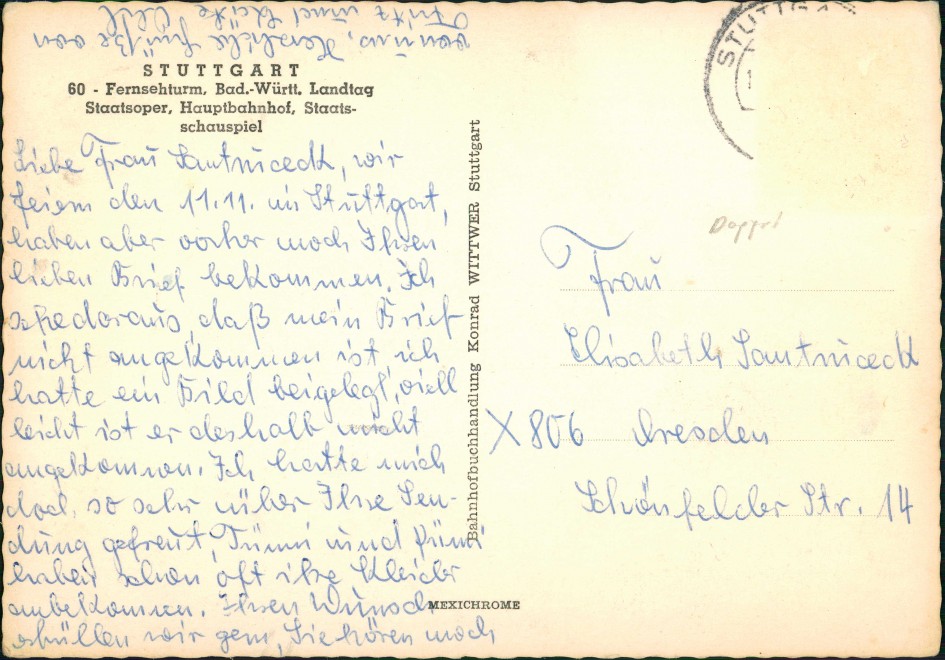 STUTTGART
60 - Fernsehturm, Bad.-Württ. Landtag
Staatsoper, Hauptbahnhof, Staats-
schauspiel
Liebe Frau Santruceck, wir
feiern den 11.11. in Stuttgart,
haben aber vorher noch Ihren
lieben Brief bekommen. Ich
sehe daraus, daß mein Brief
nicht angekommen ist ich
hatte ein Bild beigelegt, viel
leicht ist er deshalb nicht
angekommen. Ich hatte mich
doch so sehr über Ihre Sen-
dung gefreut, und
haben schon oft ihre Kleider
anbekommen. Ihren Wunsch
erfüllen wir gern, Sie hören noch
von uns, Herzliche Grüße von
Fritz und
Bahnhofbuchhandlung Konrad WITTWER Stuttgart
MEXICHROME
STUTTGA
Doppel
Frau
Elisabeth Santruceck
X 806 Dresden
Schönfelder Str. 14